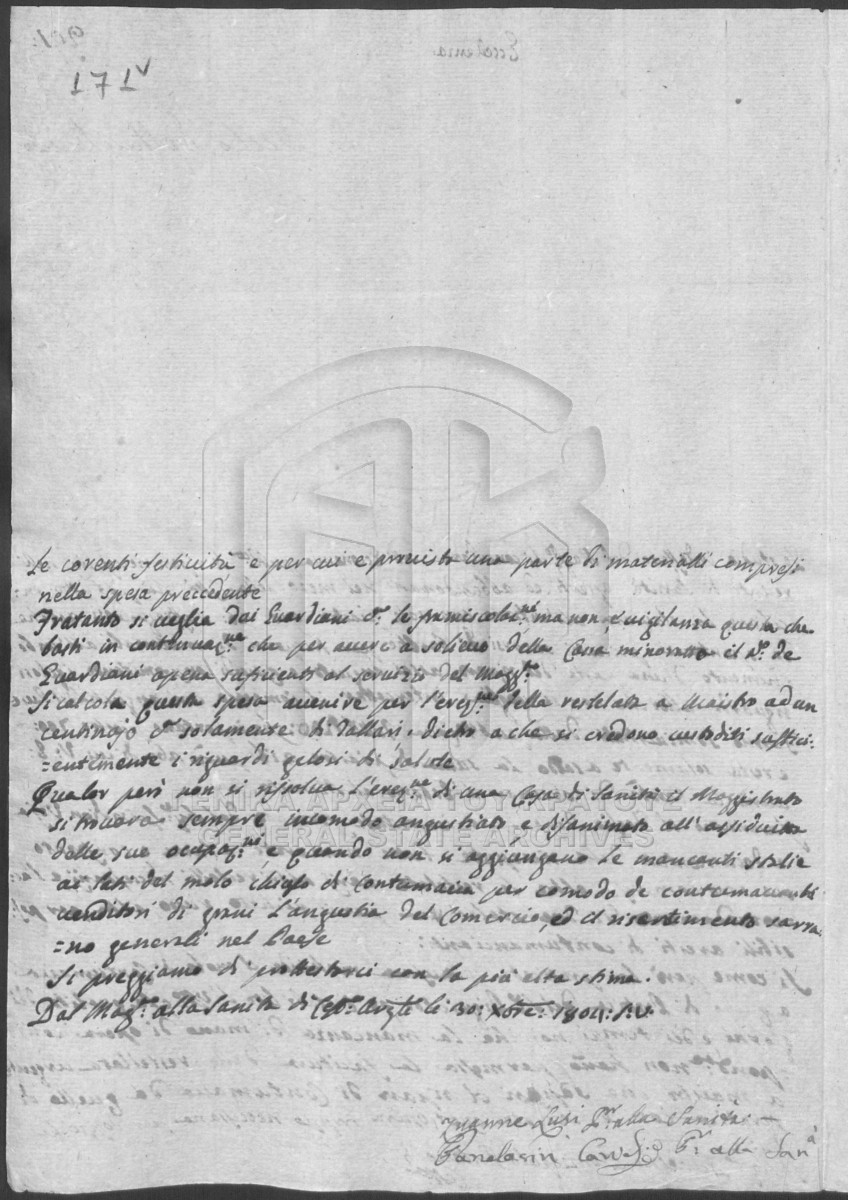 171v
Le corenti festività e per cui e provista una parte di materialli compresi
nella spesa preccedente
Fratanto si veglia dai Guardiani le ma non è vigilanza questa che
basti in continuaz.ne che per avere a solievo della Cassa minorato il n.o de
Guardiani apena suficienti al servizio del Magg.to
Si calcola questa spesa avenire per l'erez.ne della restelata a Maistro ad un
centinajo solamente di Tallari, dietro a che si credono custoditi suffici:
=entemente i riguardi gelosi di Salute
Qualor però non si rissolva l'erez.ne di una Casa di Sanità il Maggistrato
si trovarà sempre incomodo angustiato e disanimato all'assiduità
delle sue ocupaz.ni e quando non si aggiungano le mancanti Stalie
ai lati del molo chiglo di Contumacia per comodo de contumacianti
venditori di grani l'angustia del Comercio, ed il risentimento sarra:
=no generali nel Paese
Si preggiamo di prottestarci con la più alta stima.
Dal Mag.to alla Sanità di li 30: Xbre: 1804: S:V:
Zuanne Lusi Pr. alla Sanità
Pr. alla San.à
ΓΕΝΙΚΑ ΑΡΧΕΙΑ ΤΟΥ ΚΡΑΤΟΥΣ
GENERAL STATE ARCHIVES